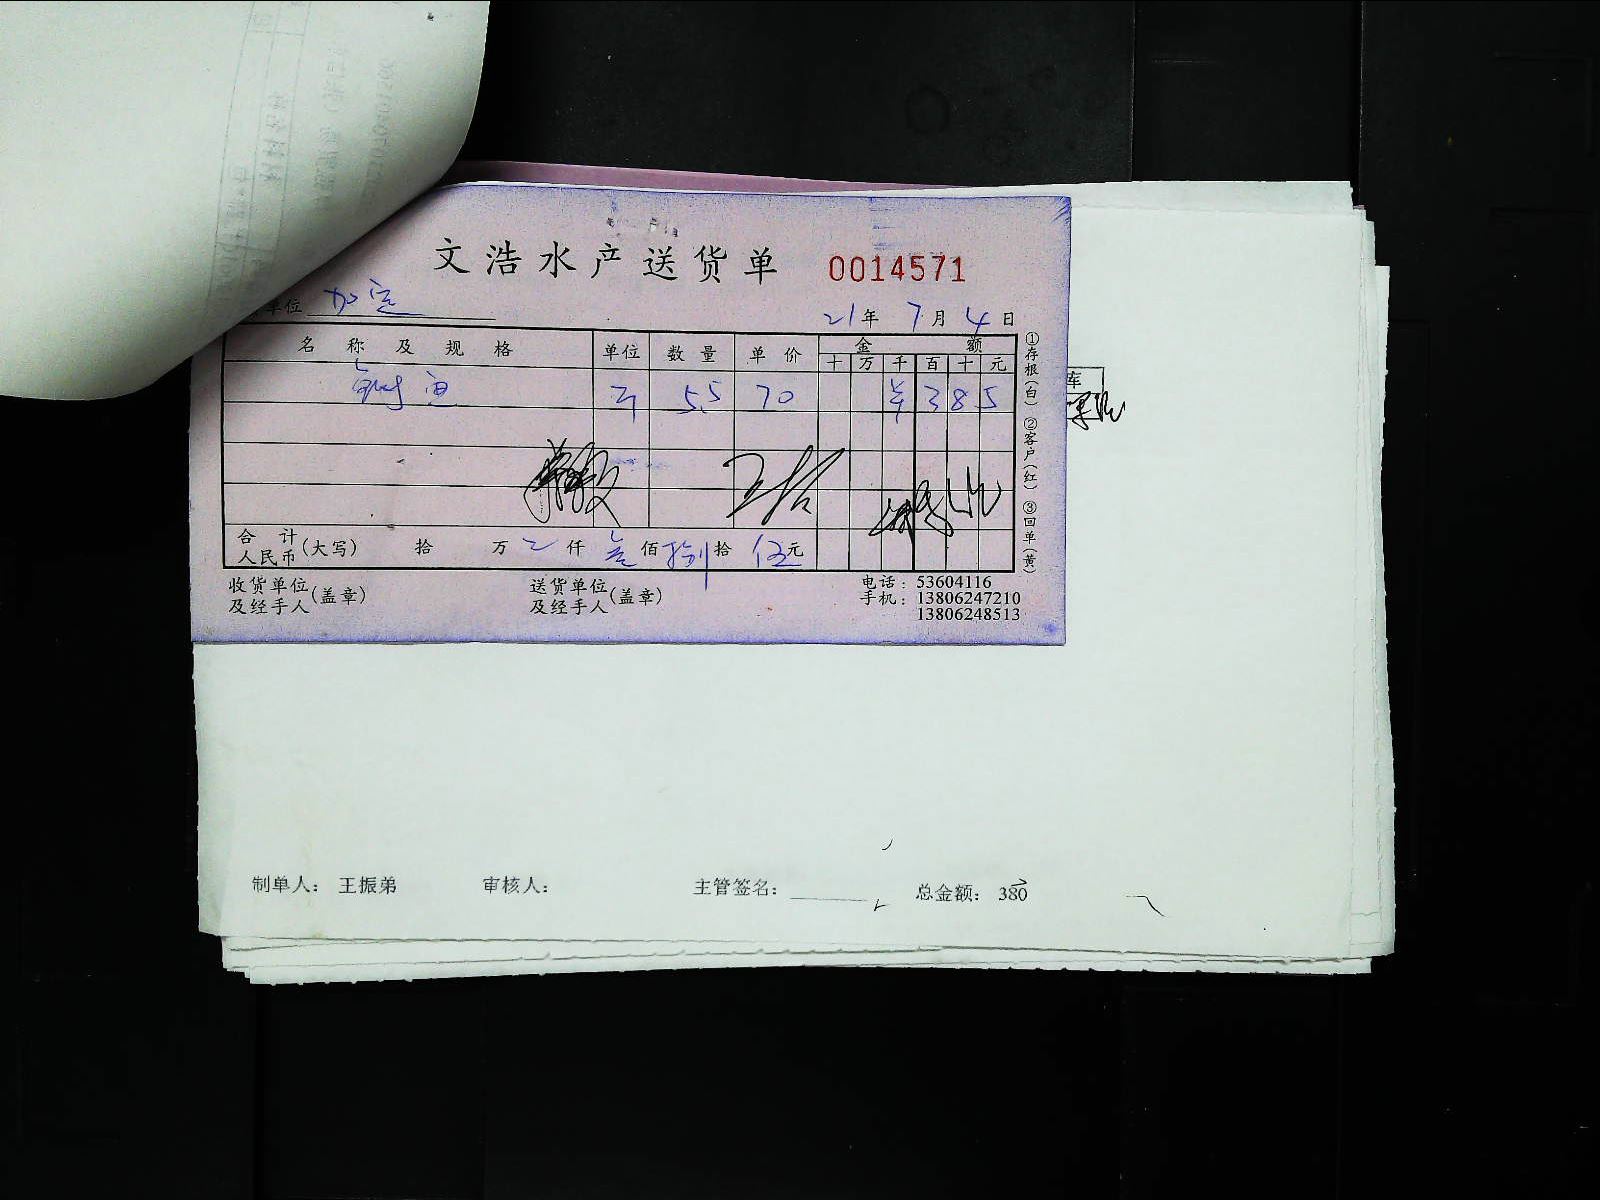 文浩水产送货单 0014571
单位 加定
21年 7月 4日
名称及规格 单位 数量 单价 金额
十 万 千 百 十 元
鲥鱼 斤 5.5 70 ¥ 3 8 5
合计
人民币(大写) 拾 万 仟 叁佰 捌拾 伍元
收货单位
及经手人(盖章)
送货单位
及经手人(盖章)
电话：53604116
手机：13806247210
13806248513
①存根(白) ②客户(红) ③回单(黄)
库
制单人： 王振弟 审核人： 主管签名： 总金额： 380